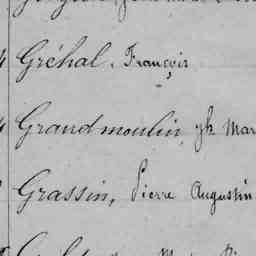 Gréhal, François
Grandmoulin, Jh Mar
Grassin, Pierre Augustin